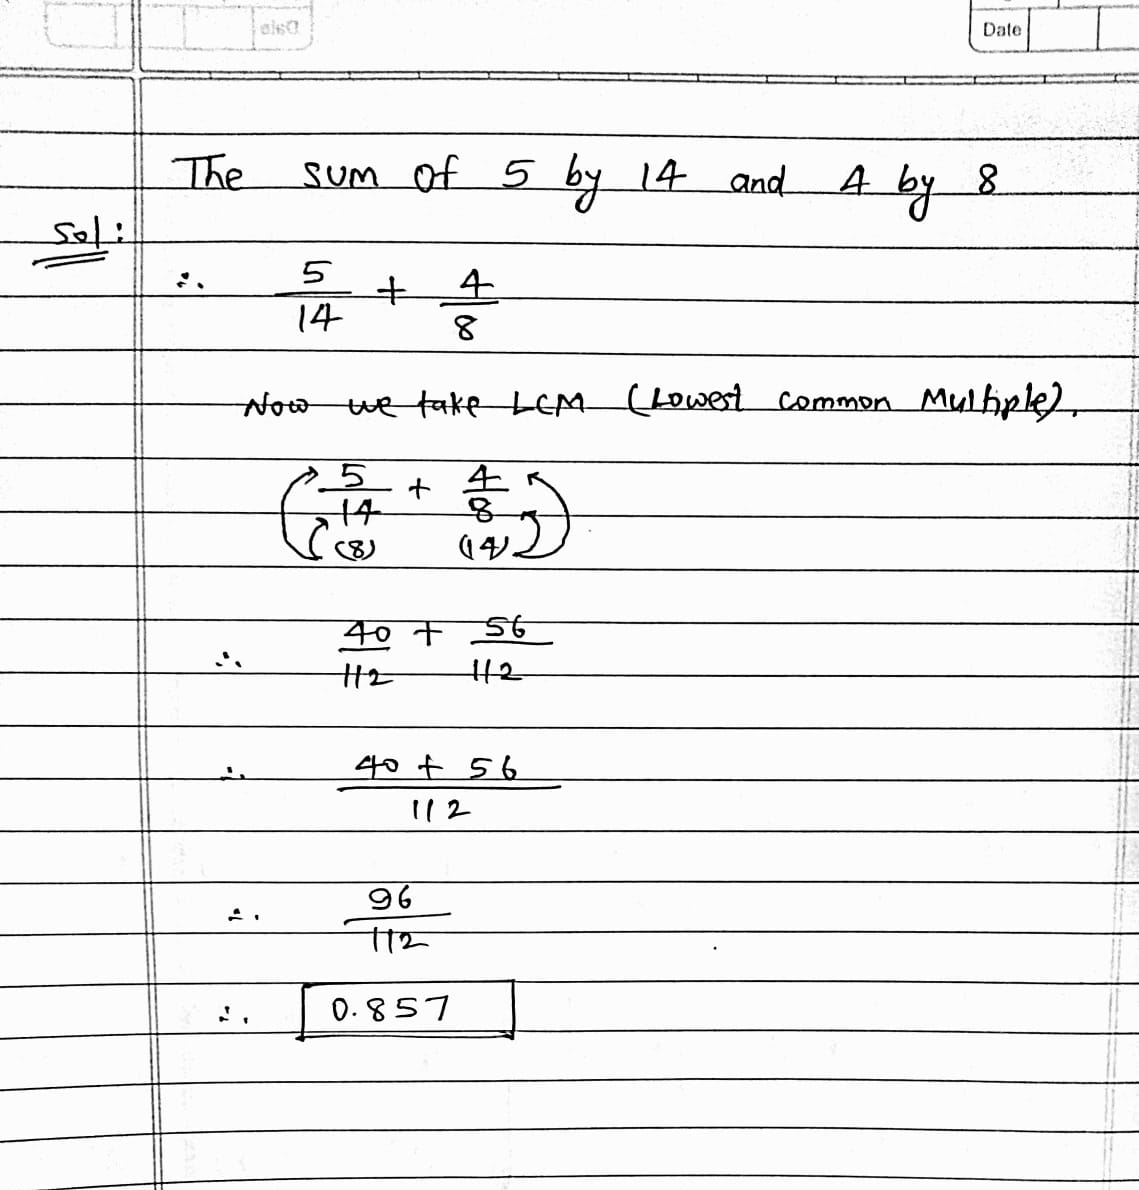 Date
The sum of 5 by 14 and 4 by 8
Sol:
∴ 5/14 + 4/8
Now we take LCM (Lowest common Multiple).
5/14 + 4/8
(8) (14)
∴ 40/112 + 56/112
∴ 40 + 56/112
∴ 96/112
∴ 0.857